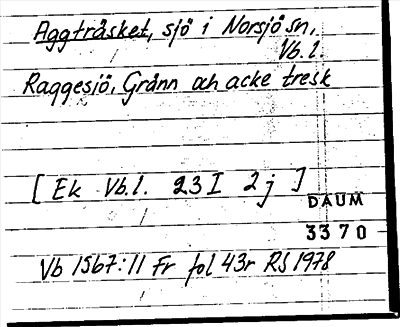 Aggträsket, sjö i Norsjö sn,
Vb. l.
Raggesjö, Gränn och acke tresk
[ Ek Vb. l. 23 I 2 j ]
DAUM
3370
Vb 1567:11 Fr fol 43r RS 1978